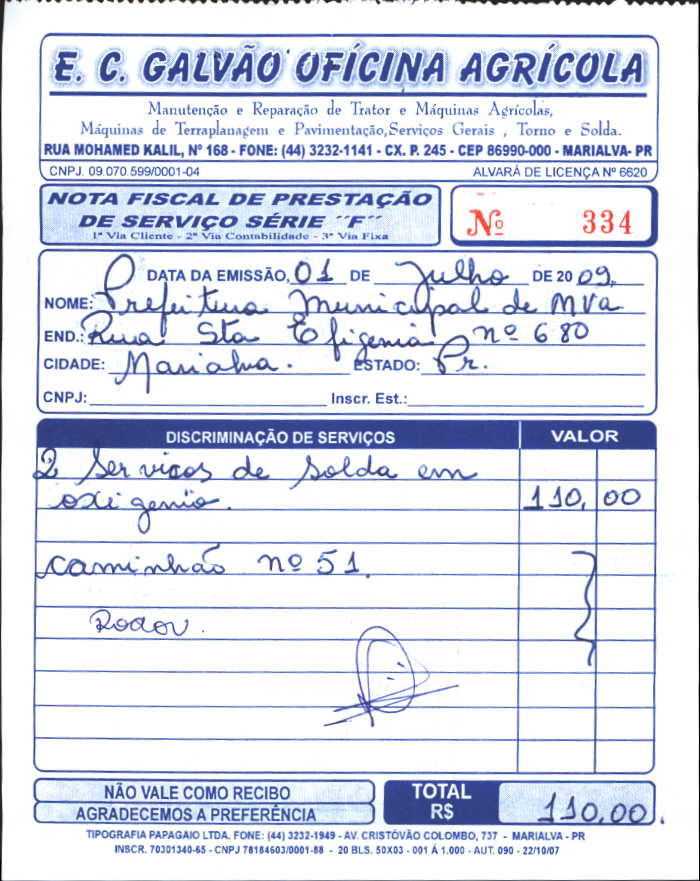 E. C. GALVÃO OFÍCINA AGRÍCOLA
Manutenção e Reparação de Trator e Máquinas Agrícolas,
Máquinas de Terraplanagem e Pavimentação,Serviços Gerais , Torno e Solda.
RUA MOHAMED KALIL, Nº 168 - FONE: (44) 3232-1141 - CX. P. 245 - CEP 86990-000 - MARIALVA- PR
CNPJ. 09.070.599/0001-04 ALVARÁ DE LICENÇA Nº 6620
NOTA FISCAL DE PRESTAÇÃO
DE SERVIÇO SÉRIE ´´F´´
1ª Via Cliente - 2ª Via Contabilidade - 3ª Via Fixa
Nº 334
DATA DA EMISSÃO, 01 DE Julho DE 2009.
NOME: Prefeitura Municipal de MVa
END.: Rua Sta Efigenia nº 680
CIDADE: Marialva. ESTADO: Pr.
CNPJ: Inscr. Est.:
DISCRIMINAÇÃO DE SERVIÇOS VALOR
2 Serviços de solda em
oxigenio. 110,00
caminhão nº 51.
Rodov.
NÃO VALE COMO RECIBO
AGRADECEMOS A PREFERÊNCIA
TOTAL
R$ 110,00.
TIPOGRAFIA PAPAGAIO LTDA. FONE: (44) 3232-1949 - AV. CRISTÓVÃO COLOMBO, 737 - MARIALVA - PR
INSCR. 70301340-65 - CNPJ 78184603/0001-88 - 20 BLS. 50X03 - 001 Á 1.000 - AUT. 090 - 22/10/07